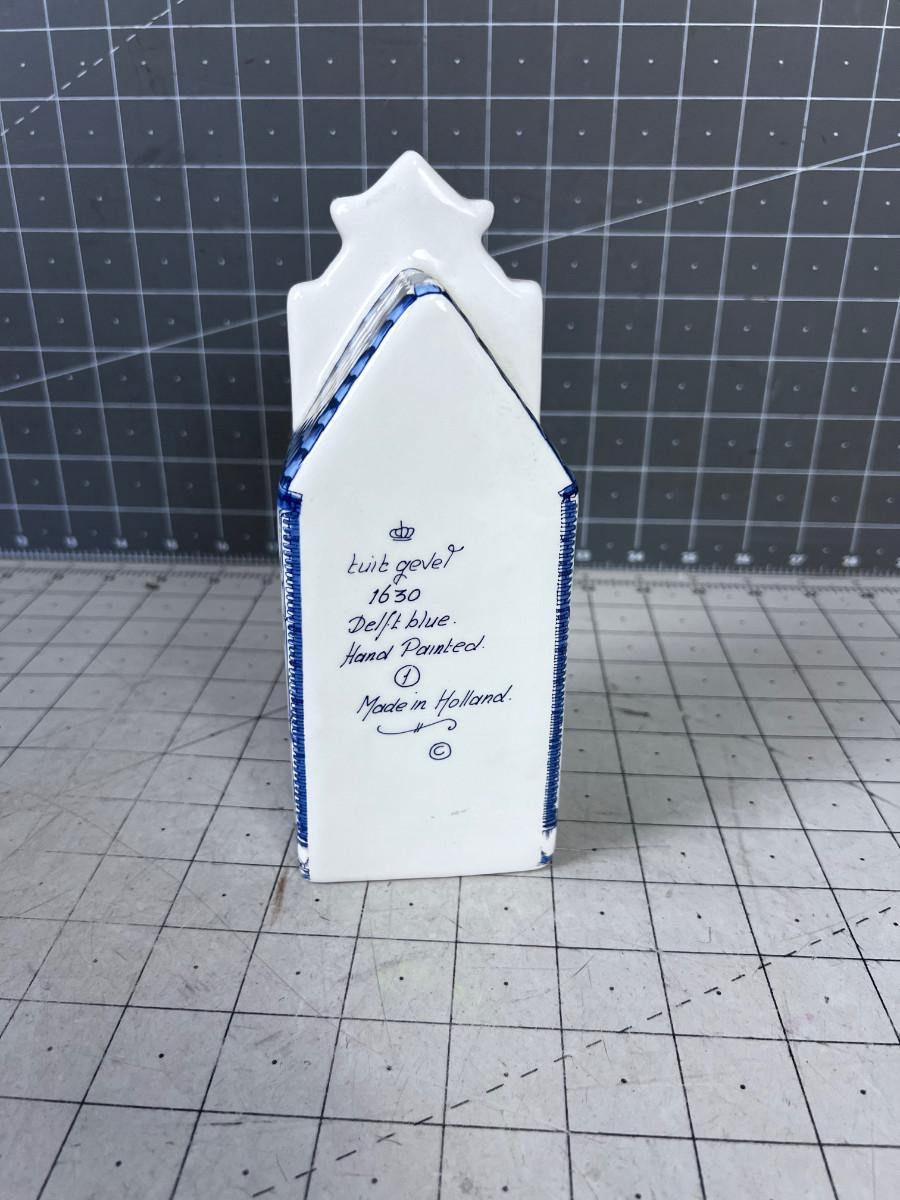 tuit gevel
1630
Delft blue.
Hand Painted.
1
Made in Holland.
©